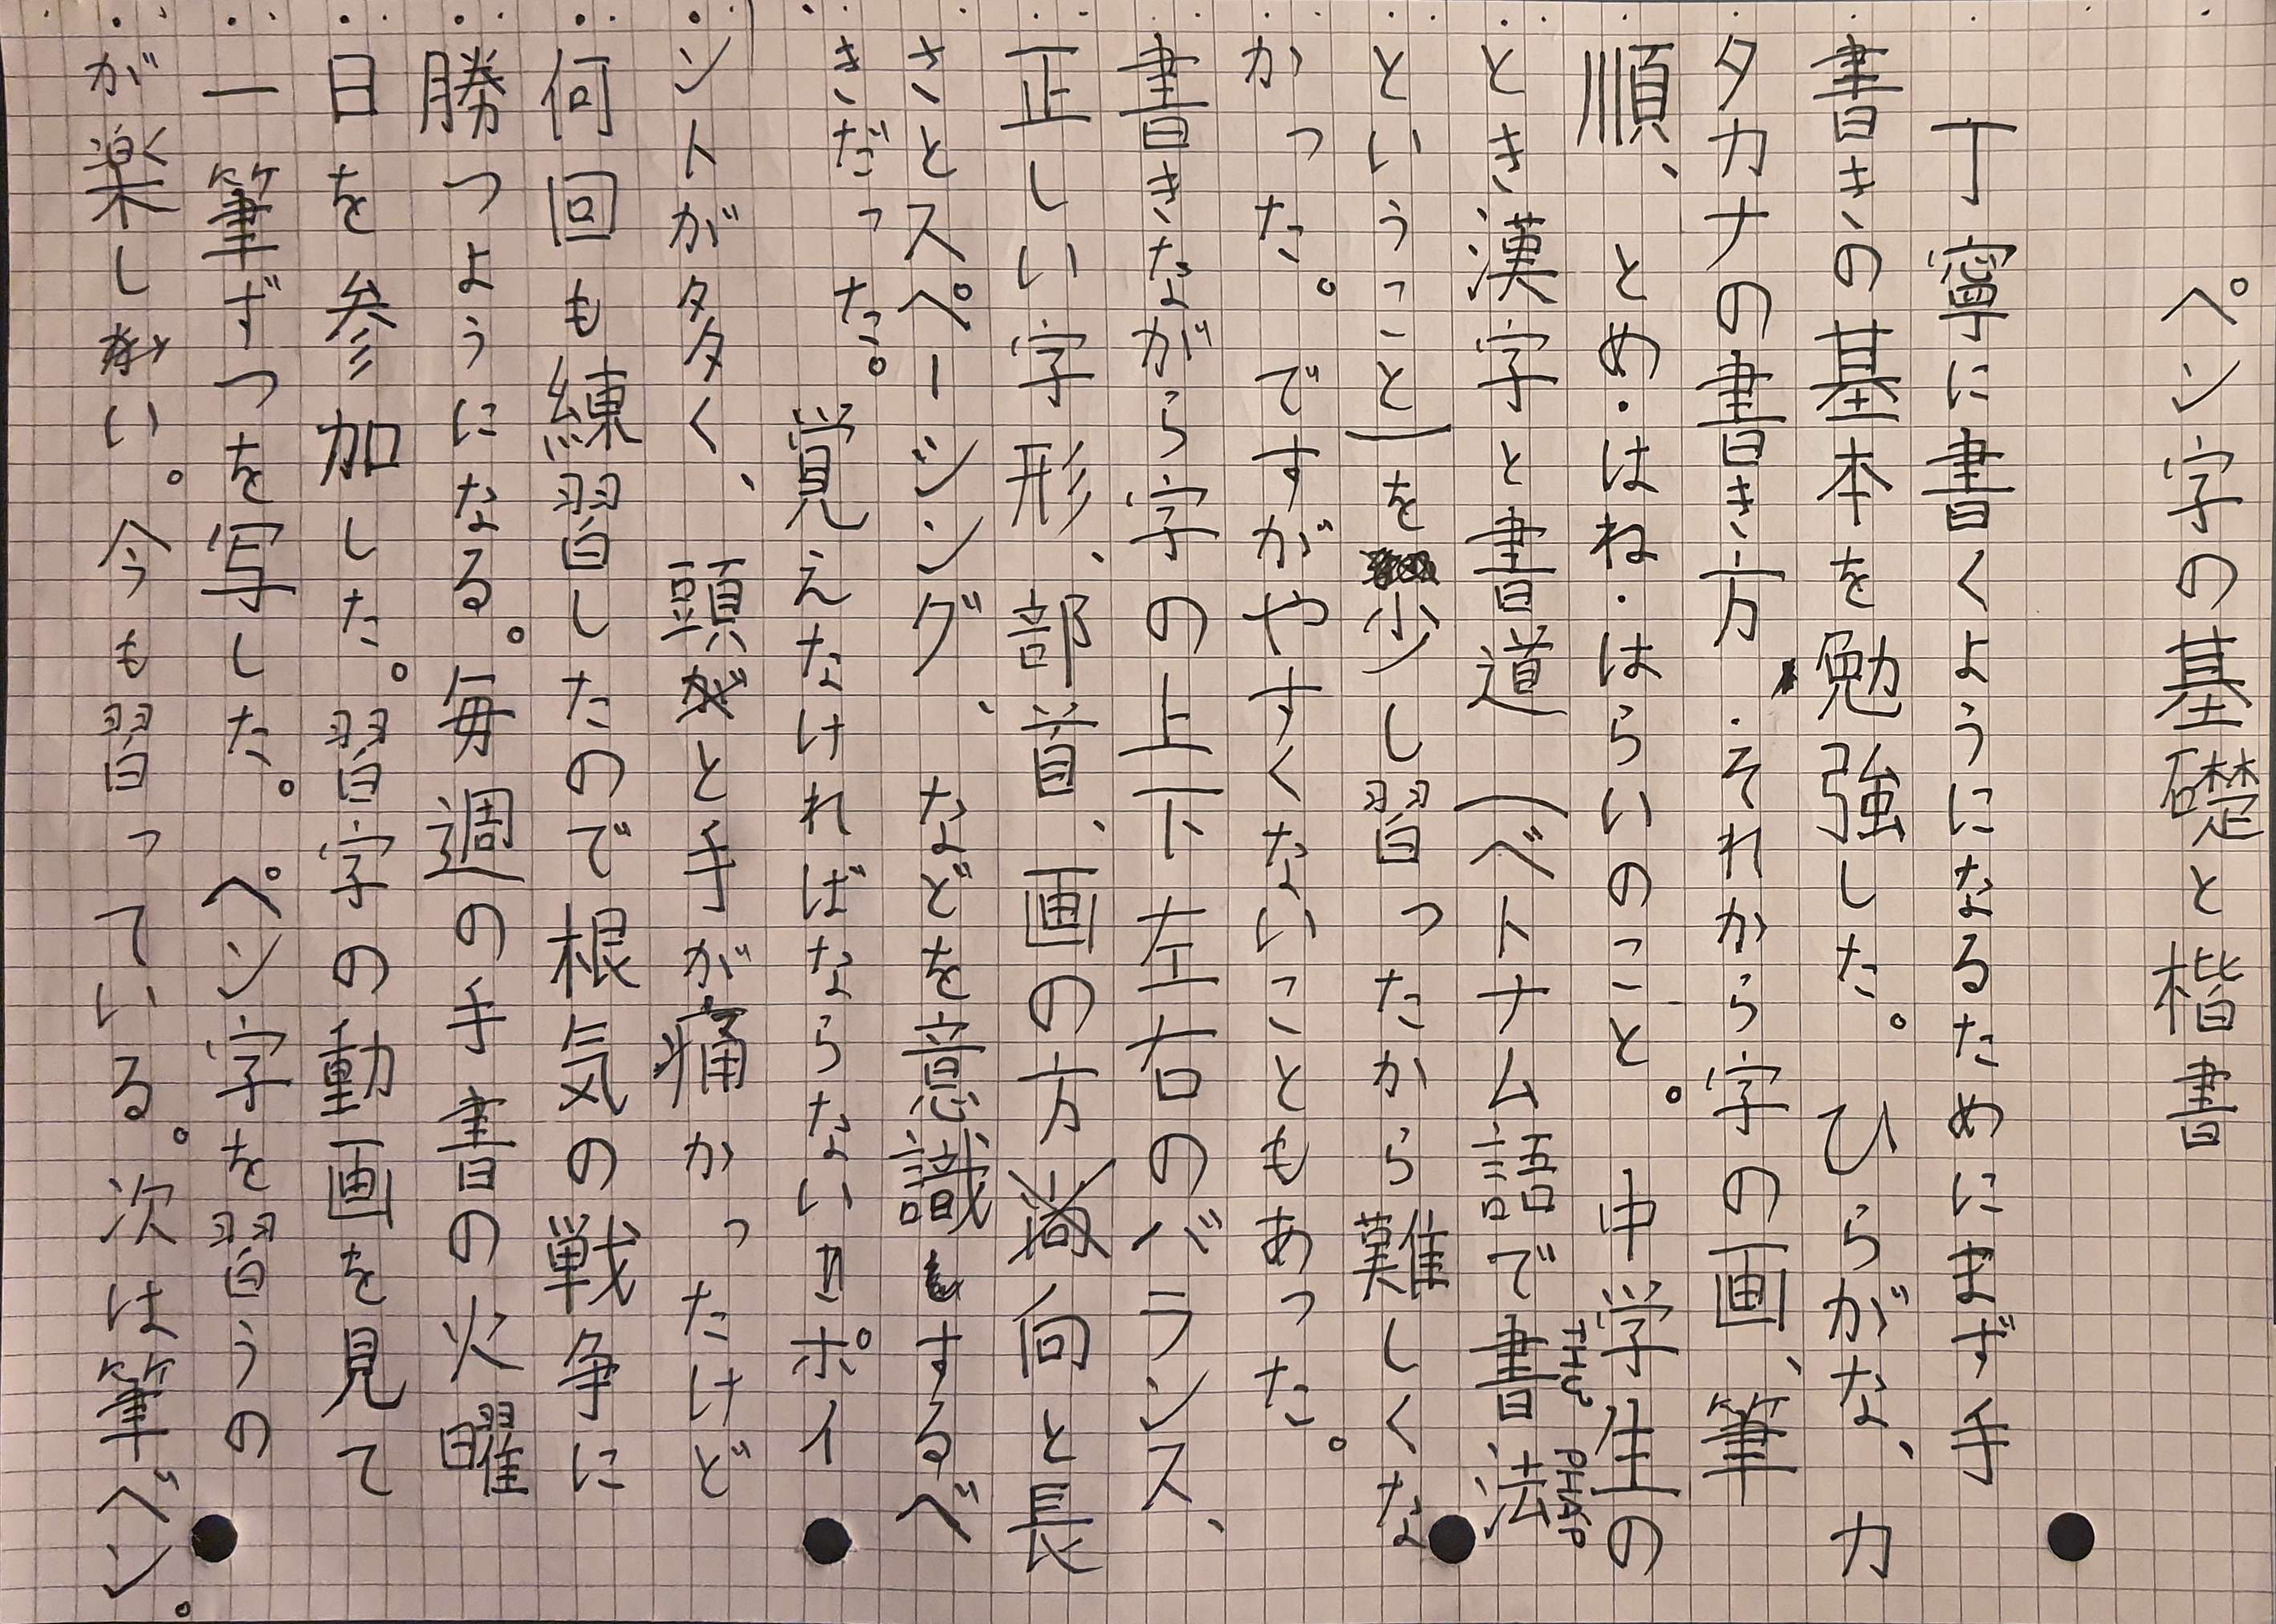 ペン字の基礎と楷書
丁寧に書くようになるためにまず手
書きの基本を勉強した。ひらがな、カ
タカナの書き方・それから字の画、筆
順、とめ・はね・はらいのこと。中学生の
とき漢字と書道(ベトナム語で書法
THƯ PHÁP
ということ)を少し習ったから難しくな
かった。ですがやすくないこともあった。
書きながら字の上下左右のバランス、
正しい字形、部首、画の方向と長
さとスペーシング、などを意識するべ
きだった。覚えなければならないポイ
ントがタタく、頭と手が痛かったけど
何回も練習したので根気の戦争に
勝つようになる。毎週の手書の火曜
日を参加した。習字の動画を見て
一筆ずつを写した。ペン字を習うの
が楽しい。今も習っている。次は筆ペン。